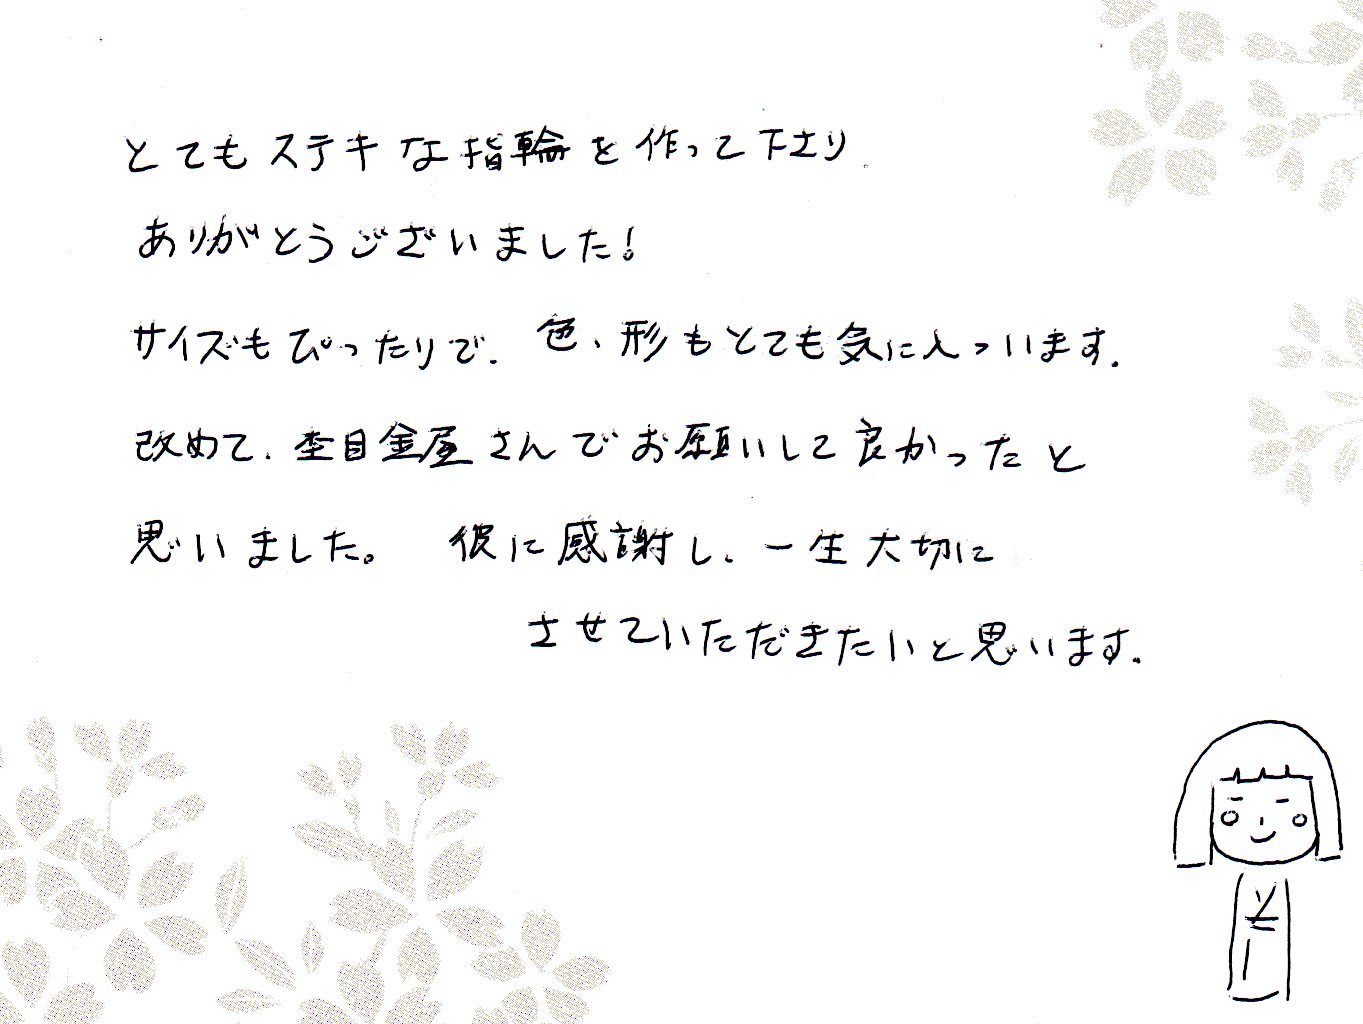 とてもステキな指輪を作って下さり
ありがとうございました!
サイズもぴったりで、色、形もとても気に入っています。
改めて、杢目金屋さんでお願いして良かったと
思いました。 彼に感謝し、一生大切に
させていただきたいと思います。